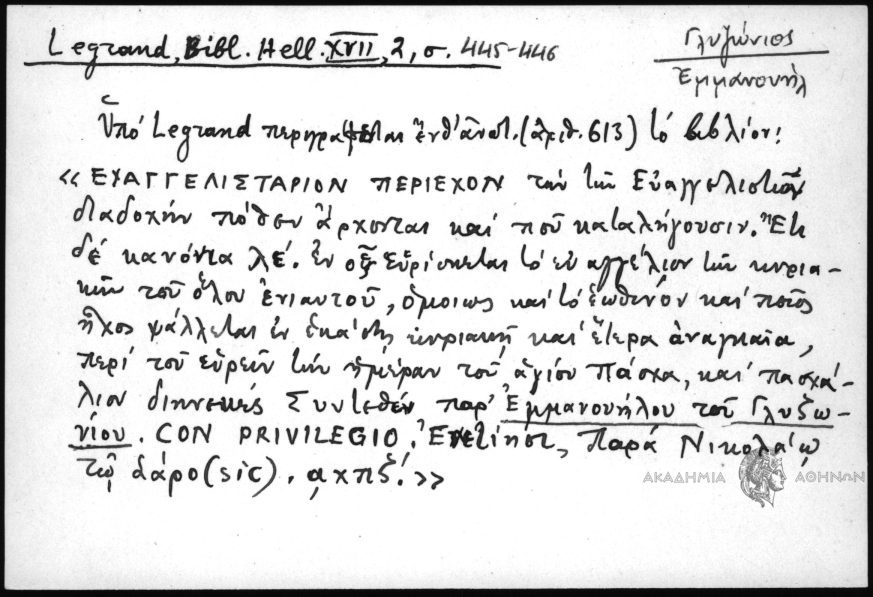 Legrand, Bibl. Hell. XVII, 2, σ. 445-446
Γλυζώνιος
Ἐμμανουήλ
Ὑπό Legrand περιγράφεται ἐνθ' ἀνωτ. (ἀριθ. 613) τό βιβλίον:
«ΕΥΑΓΓΕΛΙΣΤΑΡΙΟΝ ΠΕΡΙΕΧΟΝ τήν τῶν Εὐαγγελιστῶν
διαδοχήν πόθεν ἄρχονται καί ποῦ καταλήγουσιν. Ἔτι
δέ κανόνια λέ. ἐν οἷς εὑρίσκεται τό εὐαγγέλιον τῶν κυρια-
κῶν τοῦ ὅλου ἐνιαυτοῦ, ὁμοίως καί τό ἑωθινόν καί ποῖος
ἦχος ψάλλεται ἐν ἑκάστῃ κυριακῇ καί ἕτερα ἀναγκαῖα,
περί τοῦ εὑρεῖν τήν ἡμέραν τοῦ ἁγίου Πάσχα, καί πασχά-
λιον διηνεκές Συντεθέν παρ' Ἐμμανουήλου τοῦ Γλυζω-
νίου. CON PRIVILEGIO. Ἐνετίησι, Παρά Νικολάῳ
τῷ Σάρο (sic). αχπξ΄.»
ΑΚΑΔΗΜΙΑ ΑΘΗΝΩΝ